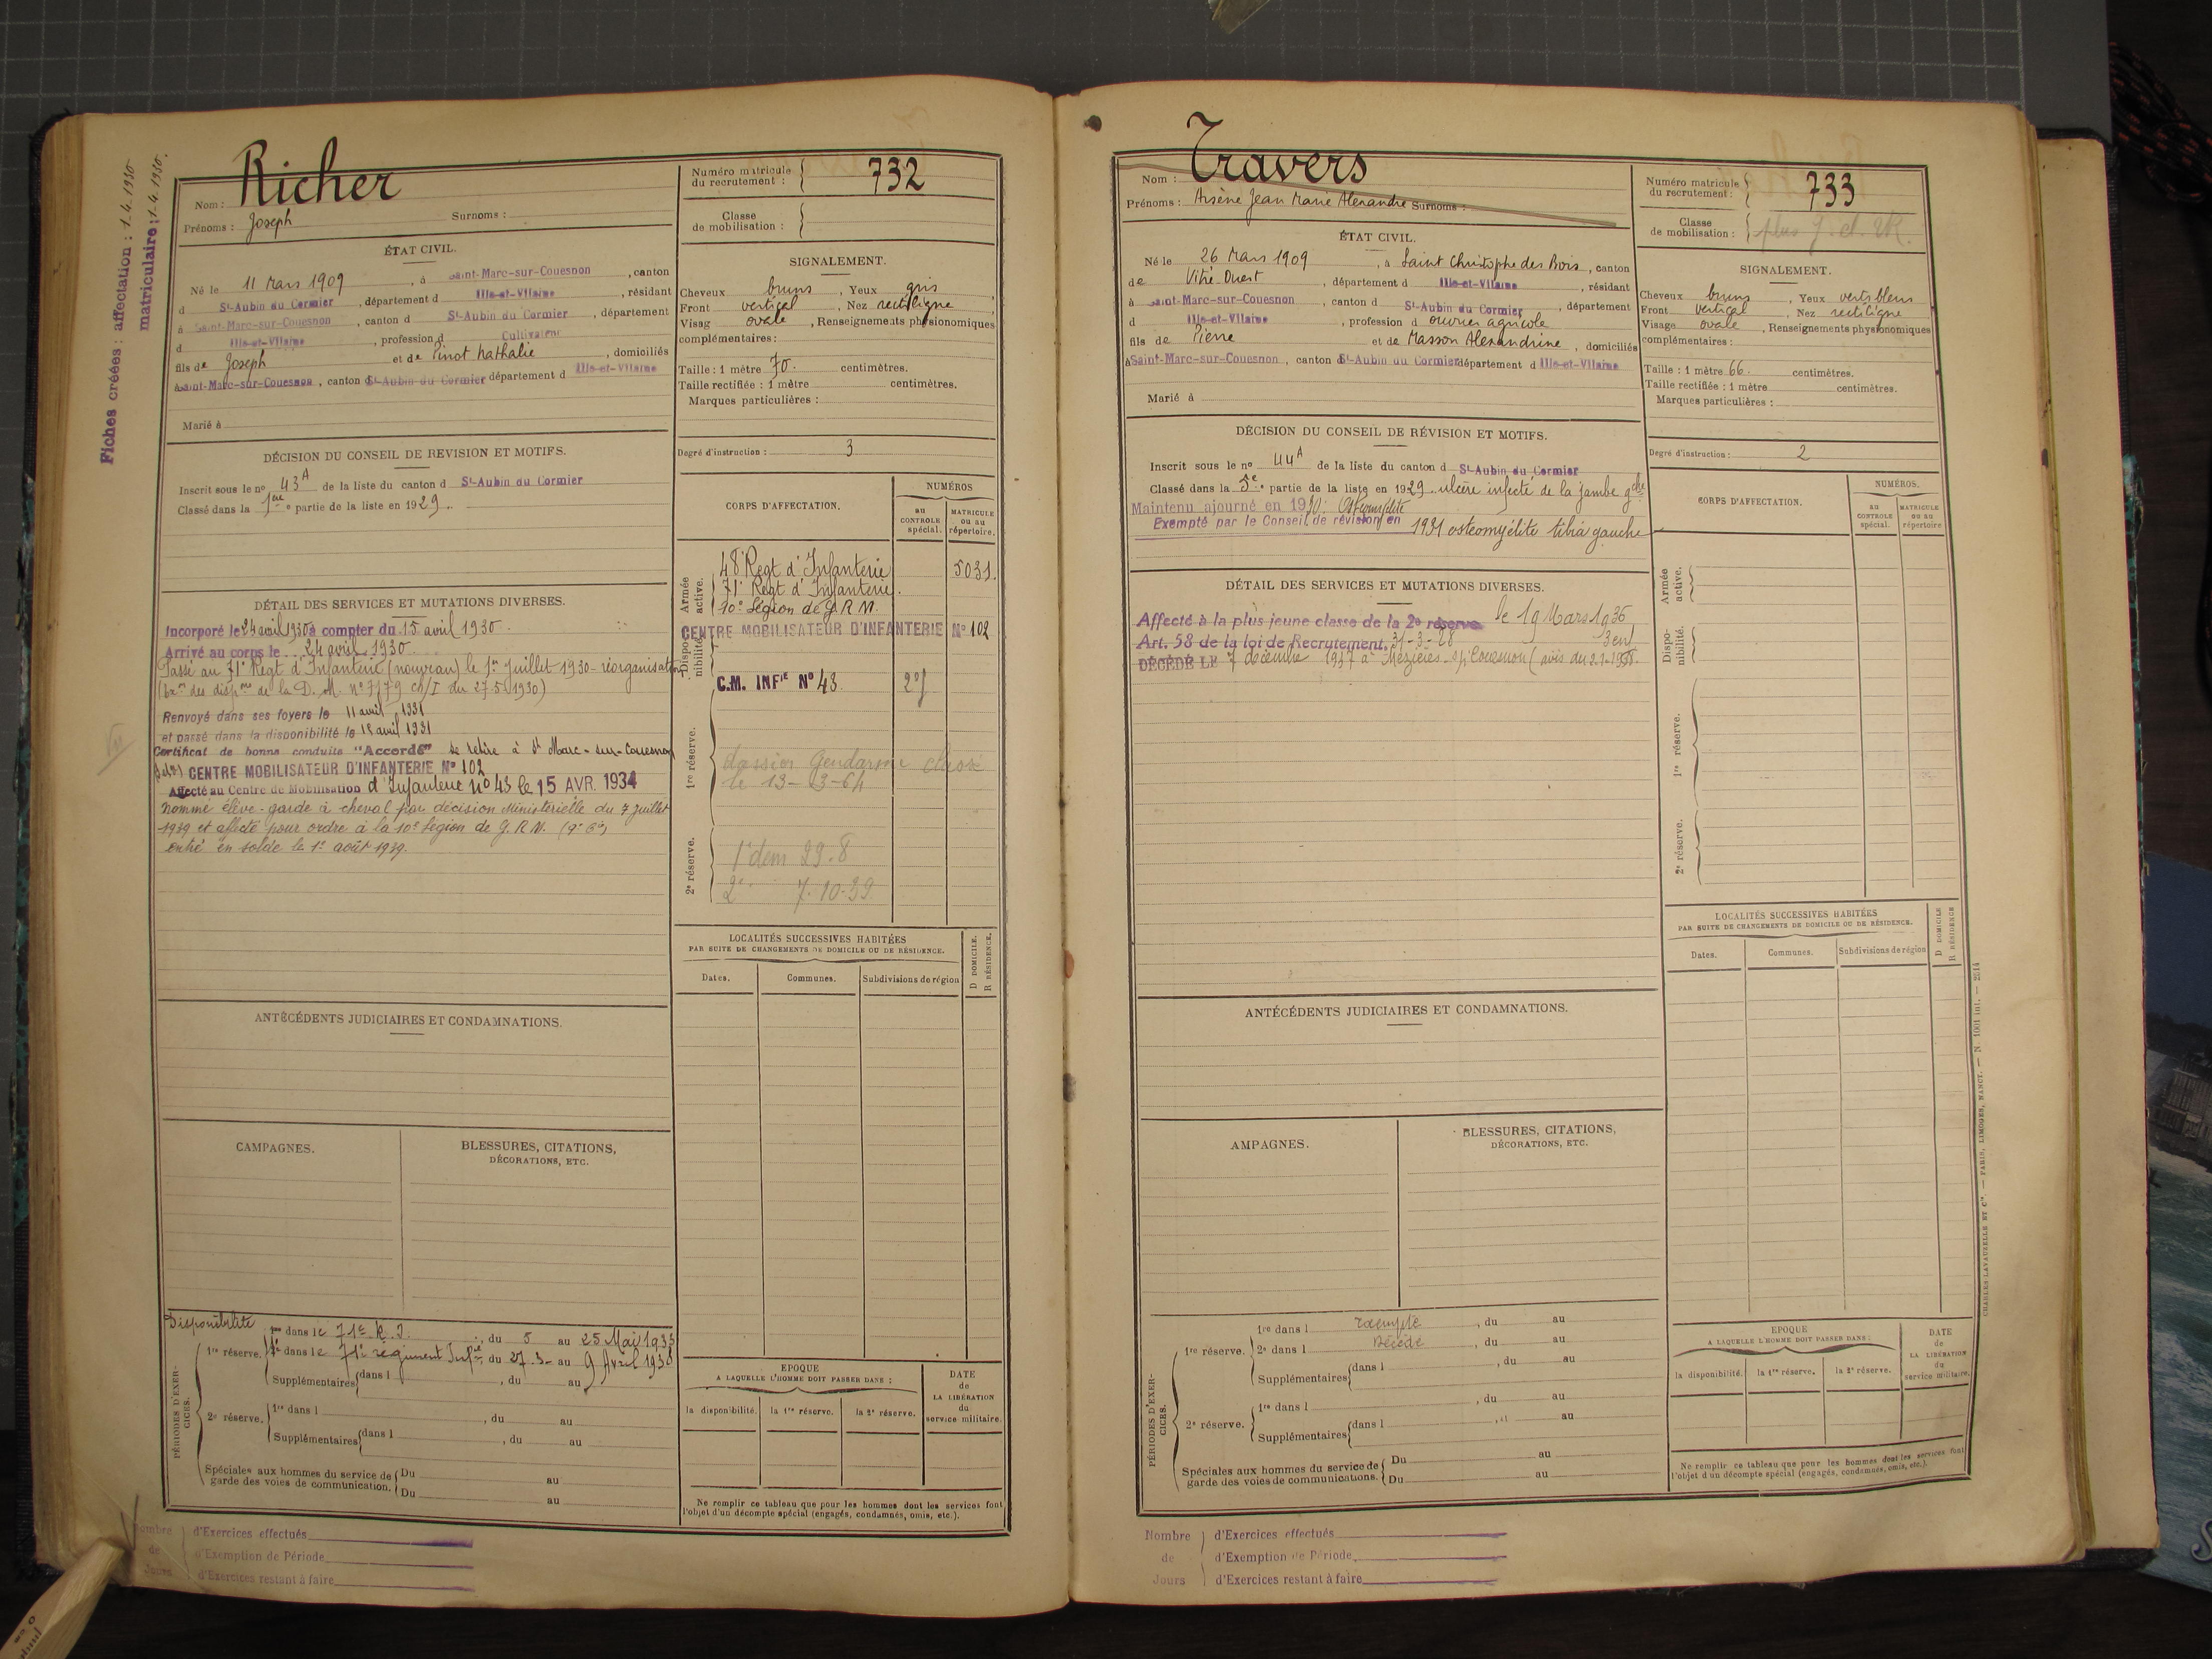 Fiches créées : affectation : 1-4-1930
matriculaire : 1-4-1930.
Nom : Richer
Prénoms : Joseph Surnoms :
Numéro matricule du recrutement : 732
Classe de mobilisation :
ÉTAT CIVIL.
Né le 11 Mars 1909, à Saint-Marc-sur-Couesnon, canton
d St-Aubin du Cormier, département d Ille-et-Vilaine, résidant
à Saint-Marc-sur-Couesnon, canton d St-Aubin du Cormier, département
d Ille-et-Vilaine, profession d Cultivateur
fils de Joseph et de Pinot Nathalie, domiciliés
à Saint-Marc-sur-Couesnon, canton d St-Aubin du Cormier département d Ille-et-Vilaine
Marié à
SIGNALEMENT.
Cheveux bruns, Yeux gris,
Front vertical, Nez rectiligne,
Visag ovale, Renseignements physionomiques
complémentaires :
Taille : 1 mètre 70. centimètres.
Taille rectifiée : 1 mètre centimètres.
Marques particulières :
Degré d'instruction : 3
DÉCISION DU CONSEIL DE REVISION ET MOTIFS.
Inscrit sous le no 43A de la liste du canton d St-Aubin du Cormier
Classé dans la 1ère partie de la liste en 1929.
DÉTAIL DES SERVICES ET MUTATIONS DIVERSES.
Incorporé le 24 avril 1930 à compter du 15 avril 1930.
Arrivé au corps le 24 avril 1930.
Passé au 71e Regt d'Infanterie (nouveau) le 1er Juillet 1930 - réorganisation
des de la D. M. n° 7179 Ch/I du 27.5.1930)
Renvoyé dans ses foyers le 11 avril 1931
et passé dans la disponibilité le 15 avril 1931
Certificat de bonne conduite "Accordé" se retire à St Marc-sur-Couesnon
CENTRE MOBILISATEUR D'INFANTERIE N° 102
Affecté au Centre de Mobilisation d'Infanterie no 43 le 15 AVR. 1934
Nommé élève-garde à cheval par décision Ministérielle du 7 juillet
1939 et affecté pour ordre à la 10e Légion de G. R. M.
entré en solde le 1er août 1939.
CORPS D'AFFECTATION.
NUMÉROS
au CONTROLE spécial.
MATRICULE ou au répertoire.
Armée active.
48 Regt d'Infanterie 5031.
71e Regt d'Infanterie.
10e Légion de G R M.
CENTRE MOBILISATEUR D'INFANTERIE N° 102
Disponibilité.
C.M. INFIE N° 43.
1re réserve.
dossier Gendarme classé
le 13-3-64
2e réserve.
1e dem 29.8
2e 7.10.39
LOCALITÉS SUCCESSIVES HABITÉES
PAR SUITE DE CHANGEMENTS DE DOMICILE OU DE RÉSIDENCE.
D DOMICILE.
R RÉSIDENCE.
Dates. Communes. Subdivisions de région
ANTÉCÉDENTS JUDICIAIRES ET CONDAMNATIONS.
CAMPAGNES.
BLESSURES, CITATIONS,
DÉCORATIONS, ETC.
PÉRIODES D'EXERCICES.
Disponibilité
1re réserve.
dans le 71e R.I., du 5 au 25 Mai 1933
dans le 71e régiment Infie, du 27-3- au 9 Avril 1938
Supplémentaires dans l , du au
2e réserve.
1re dans l , du au
Supplémentaires dans l , du au
Spéciales aux hommes du service de garde des voies de communication.
Du au
Du au
EPOQUE
A LAQUELLE L'HOMME DOIT PASSER DANS :
la disponibilité. la 1re réserve. la 2e réserve.
DATE de LA LIBÉRATION du service militaire.
Ne remplir ce tableau que pour les hommes dont les services font
l'objet d'un décompte spécial (engagés, condamnés, omis, etc.).
Nombre de Jours
d'Exercices effectués
d'Exemption de Période
d'Exercices restant à faire
Nom : Travers
Prénoms : Arsène Jean Marie Alexandre Surnoms :
Numéro matricule du recrutement : 733
Classe de mobilisation :
ÉTAT CIVIL.
Né le 26 Mars 1909, à Saint Christophe des Bois, canton
de Vitré Ouest, département d Ille-et-Vilaine, résidant
à Saint-Marc-sur-Couesnon, canton d St-Aubin du Cormier, département
d Ille-et-Vilaine, profession d ouvrier agricole
fils de Pierre et de Masson Alexandrine, domiciliés
à Saint-Marc-sur-Couesnon, canton d St-Aubin du Cormier département d Ille-et-Vilaine
Marié à
SIGNALEMENT.
Cheveux bruns, Yeux verts bleus
Front vertical, Nez rectiligne
Visage ovale, Renseignements physionomiques
complémentaires :
Taille : 1 mètre 66. centimètres.
Taille rectifiée : 1 mètre centimètres.
Marques particulières :
Degré d'instruction : 2
DÉCISION DU CONSEIL DE RÉVISION ET MOTIFS.
Inscrit sous le no 44A de la liste du canton d St-Aubin du Cormier
Classé dans la 5e partie de la liste en 1929. ulcère infecté de la jambe gche
Maintenu ajourné en 1930: Ostéomyélite
Exempté par le Conseil de révision en 1931 osteomyélite tibia gauche
DÉTAIL DES SERVICES ET MUTATIONS DIVERSES.
Affecté à la plus jeune classe de la 2e réserve le 19 Mars 1936
Art. 58 de la loi de Recrutement. 31-3-28
DÉCÉDÉ LE 7 décembre 1937 à Mézières-s/-Couesnon (avis du 2-1-1938.
CORPS D'AFFECTATION.
NUMÉROS.
au CONTROLE spécial.
MATRICULE ou au répertoire
Armée active.
Disponibilité.
1re réserve.
2e réserve.
LOCALITÉS SUCCESSIVES HABITÉES
PAR SUITE DE CHANGEMENTS DE DOMICILE OU DE RÉSIDENCE.
D DOMICILE
R RÉSIDENCE
Dates. Communes. Subdivisions de région
ANTÉCÉDENTS JUDICIAIRES ET CONDAMNATIONS.
AMPAGNES.
BLESSURES, CITATIONS,
DÉCORATIONS, ETC.
PÉRIODES D'EXERCICES.
1re réserve.
1re dans l Exempté, du au
2e dans l Décédé, du au
Supplémentaires dans l , du au
2e réserve.
1re dans l , du au
Supplémentaires dans l , du au
Spéciales aux hommes du service de garde des voies de communications.
Du au
Du au
EPOQUE
A LAQUELLE L'HOMME DOIT PASSER DANS :
la disponibilité. la 1re réserve. la 2e réserve.
DATE de LA LIBÉRATION du service militaire.
Ne remplir ce tableau que pour les hommes dont les services font
l'objet d'un décompte spécial (engagés, condamnés, omis, etc.).
CHARLES-LAVAUZELLE ET Cie. — PARIS, LIMOGES, NANCY. —
Nombre de Jours
d'Exercices effectués
d'Exemption de Période
d'Exercices restant à faire